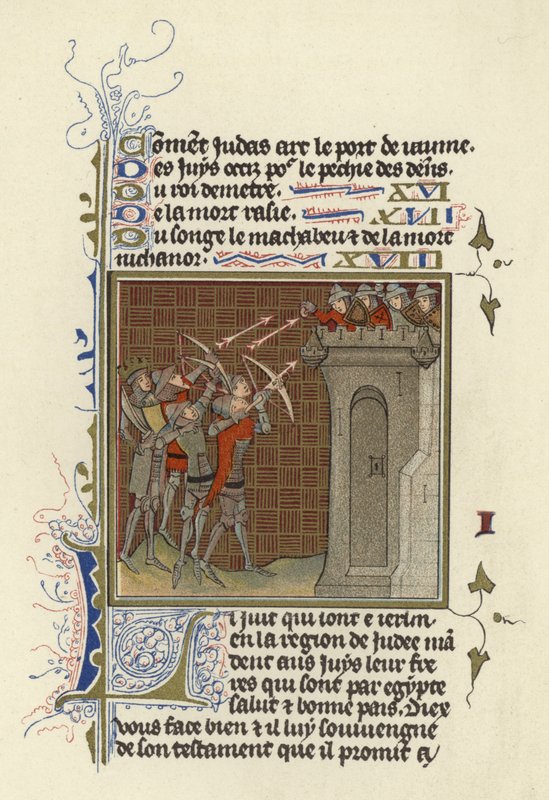 Comēt Judas art le port de iaume.
Des Juys occiz po² le pechie des dens.
Du roi demetre. XVI
De la mort rasie. XVII
Du songe le machabeu & de la mort
nichanor. XVIII
I
Li Juit qui sont e ierłm
en la region de Judee mā
dent aus Juys leur fre
res qui sont par egypte
salut & bonne pais. Diex
vous face bien & il luy souviengne
de son testament que il promit a